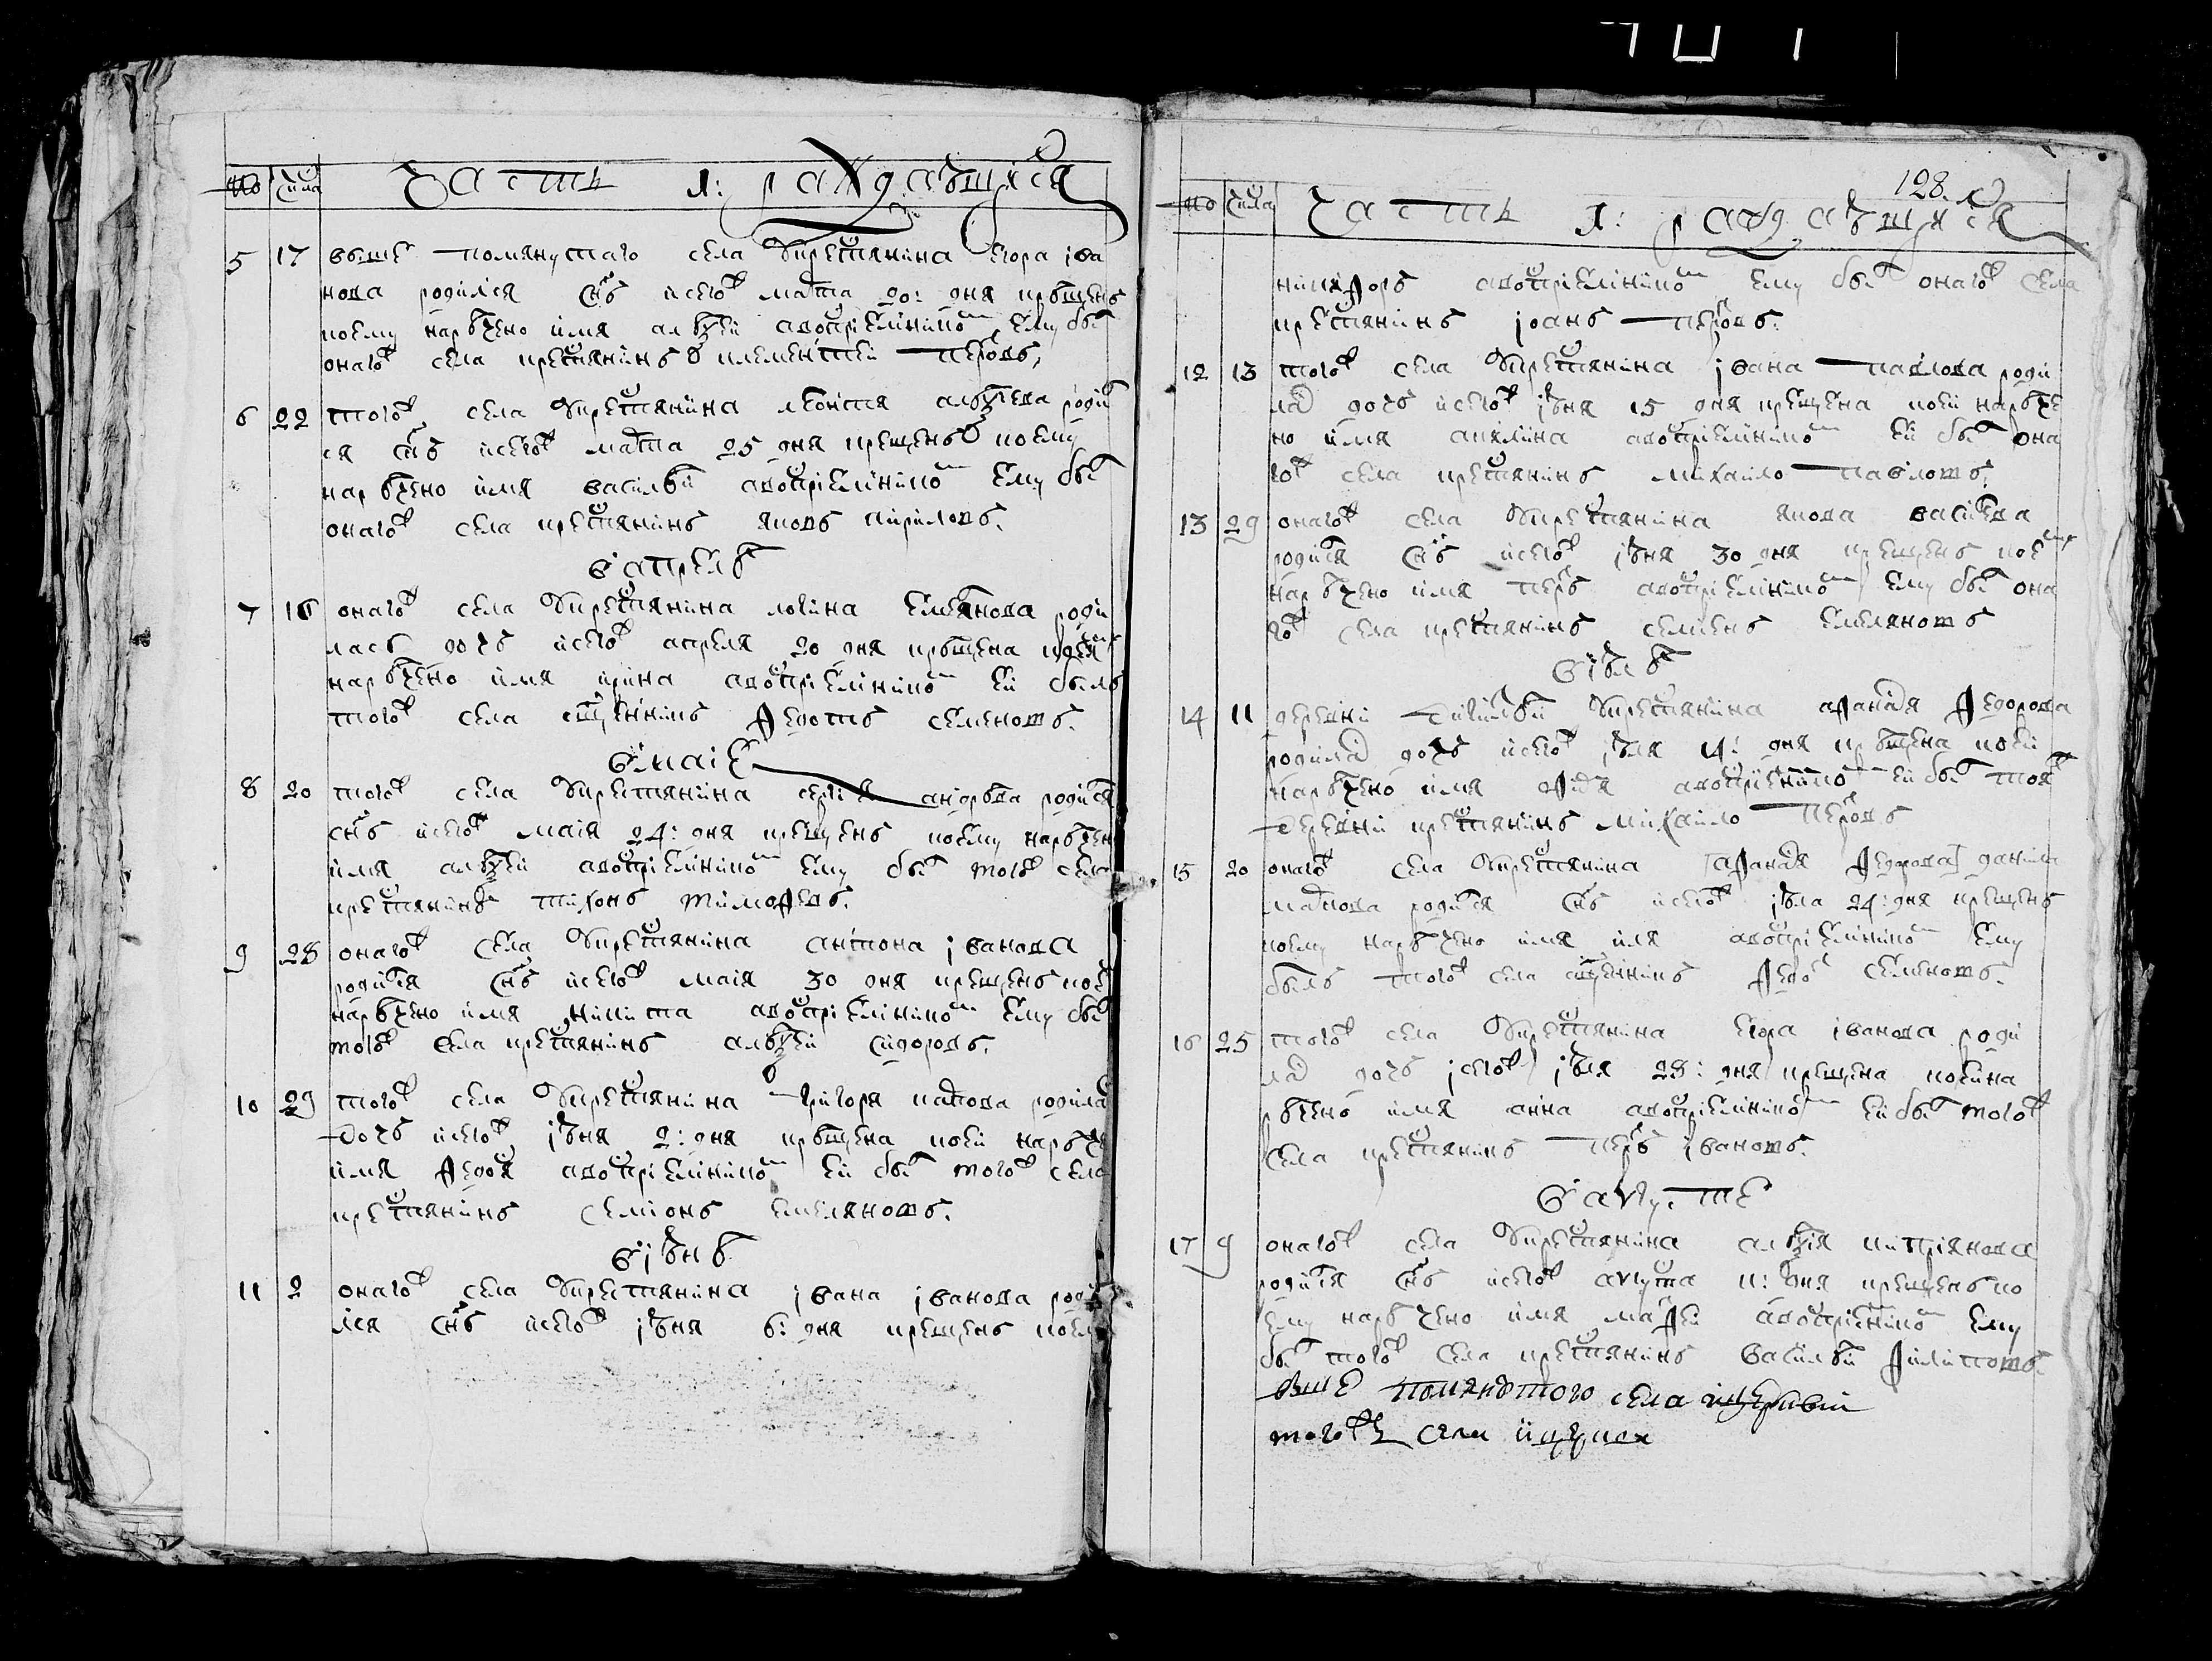 но числа Часть 1: раждающихся
5 17 выше помянутаго села укрестьянина егора ива
нова родился снъ исегож марта 20: дня крѣщенъ
коему нарѣчено имя алѣѯей авоспрiемникомъ ему былъ
онагож села крестьянинъ климентей петровъ,
6 22 тогож села укрестьянина леонтия алѣѯѣева родил
ся снъ исегож марта 25 дня крещенъ коему
нарѣчено имя василѣй авоспрiемникомъ ему былъ
онагож села крестьянинъ яковъ кириловъ.
вапрелѣ
7 16 онагож села укрестьянина логина емелянова роди
лась дочь исегож апреля 20 дня крѣщена коей
нарѣчено имя ирина авоспрiемникомъ ей былъ
тогож села сщенникъ ѳедотъ семеновъ.
вмаiе
8 20 тогож села укрестьянина сергiя андрѣева родился
снъ исегож маiя 24: дня крещенъ коему нарѣчен
имя алѣѯей авоспрiемникомъ ему былъ тогож села
крестьянинъ тихонъ тимоѳѣевъ.
9 28 онагож села укрестьянина антона iванова
родился снъ исегож маiя 30 дня крещенъ кое
нарѣчено имя никита авоспрiемникомъ ему былъ
тогож села крестьянинъ алѣѯей сидоровъ.
10 29 тогож села укрестьянина григоря родила
дочь исегож iюня 2: дня крѣщена коей нарѣче
имя ѳедосья авоспрiемникомъ ей былъ тогож села
крестьянинъ семионъ емеляновъ.
вiюнѣ
11 2 онагож села укрестьянина iвана iванова роди
лся снъ исегож iюня 6: дня крещенъ коему
но числа Часть 1: раждающихся 128.
никиѳоръ авоспрiемникомъ ему былъ онагож села
крестьянинъ iоанъ петровъ.
12 13 тогож села укрестьянина iвана павлова роди
лась дочь исегож iюня 15 дня крещена коей нарѣче
но имя акилина авоспрiемникомъ ей былъ она
гож села крестьянинъ михаило павловъ.
13 29 онагож села укрестьянина якова василева
родился снъ исегож iюня 30 дня крещенъ коему
нарѣчено имя петръ авоспрiемникомъ ему былъ она
гож села крестьянинъ семиенъ емеляновъ
вiюлѣ
14 11 деревни укрестьянина аѳанасия ѳедорова
родилась дочь исегож iюля дня крѣщена коей
нарѣчено имя авоспрiемникомъ ей былъ тояж
деревни крестьянинъ михаило петровъ
15 20 онагож села укрестьянина [аѳанася ѳедорова] данила
родился снъ исегож iюла 24: дня крещенъ
коему нарѣчено имя иля авоспрiемникомъ ему
былъ тогож села сщенникъ ѳедотъ семеновъ.
16 25 тогож села укрестьянина егора iванова роди
лась дочь iсегож iюля 28: дня крещена коейна
рѣчено имя анна авоспрiемникомъ ей былъ тогож
села крестьянинъ петръ iвановъ.
вавгусте
17 9 онагож села укрестьянина алѣѯiя китрiянова
родился снъ исегож августа 11: дня крещенъ ко
ему нарѣчено имя матѳей авоспрiемникомъ ему
былъ тогож села крестьянинъ василѣй ѳилиповъ.
выше помянутого села
тогож села